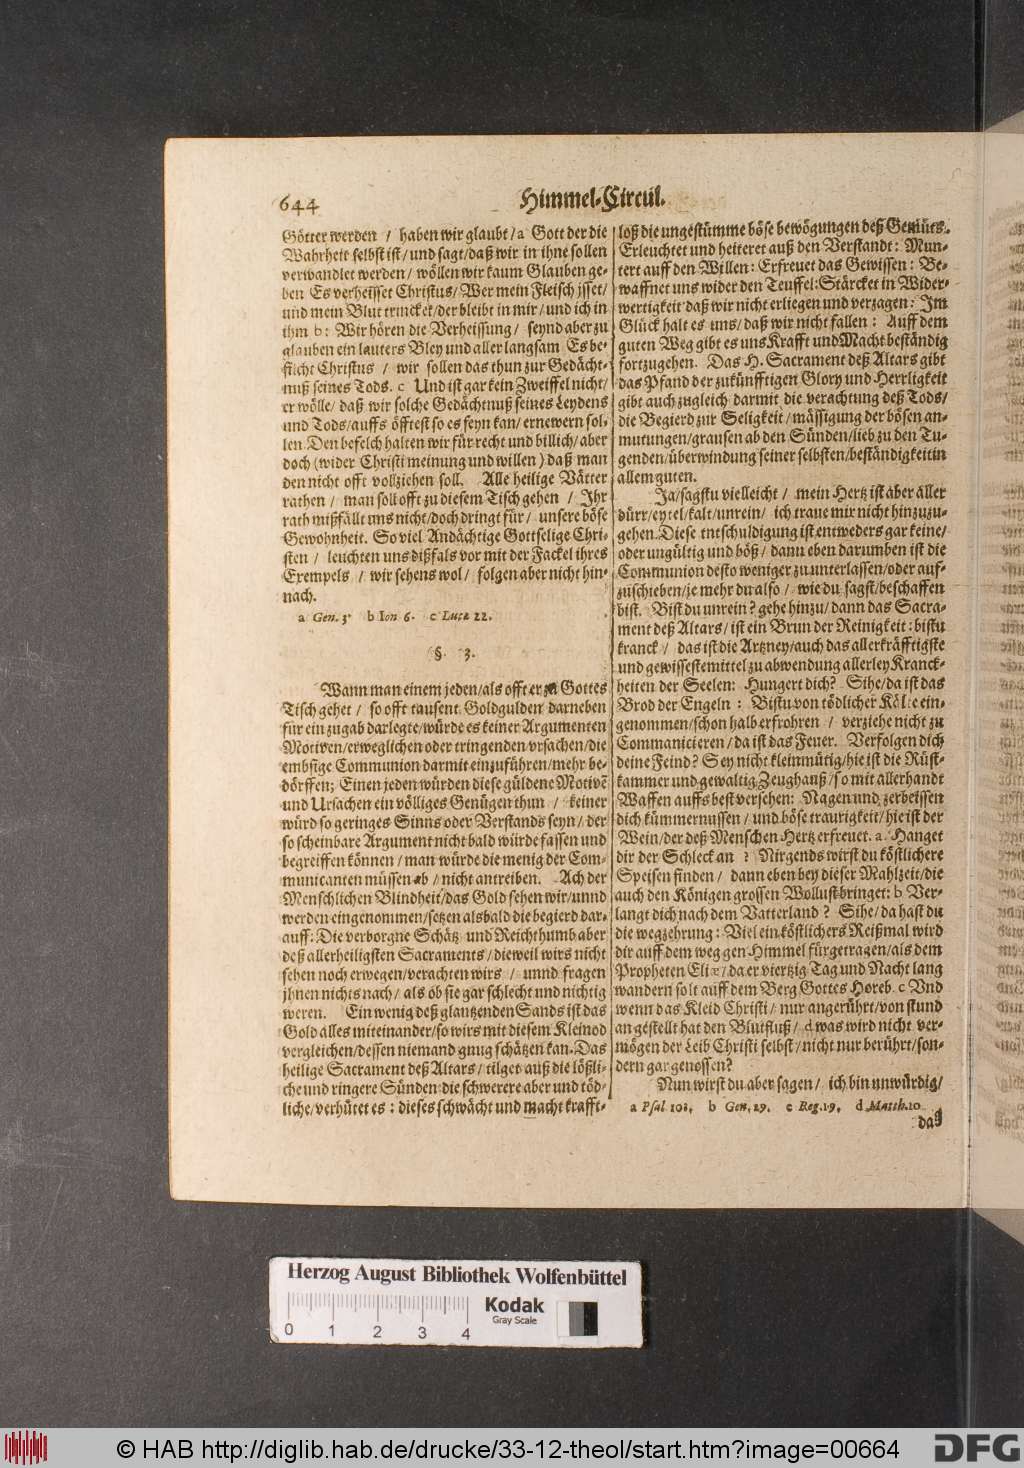 644
Himmel-Circul.
Götter werden / haben wir glaubt/a Gott der die
Wahrheit selbst ist/und sagt/daß wir in ihne sollen
verwandlet werden/ wöllen wir kaum Glauben ge-
ben Es verheisset Christus/Wer mein Fleisch jsset/
und mein Blut trincket/der bleibt in mir/und ich in
ihm b: Wir hören die Verheissung/ seynd aber zu
glauben ein lauters Bley und aller langsam Es be-
filcht Christus / wir sollen das thun zur Gedächt-
nuß seines Tods. c Und ist gar kein Zweiffel nicht/
er wölle/ daß wir solche Gedächtnuß seines Leydens
und Tods/auffs öfftest so es seyn kan/ernewern sol-
len. Den befelch halten wir für recht und billich/aber
doch (wider Christi meinung und willen) daß man
den nicht offt vollziehen soll. Alle heilige Vätter
rathen / man soll offt zu diesem Tisch gehen / Ihr
rath mißfällt uns nicht/doch dringt für/ unsere böse
Gewohnheit. So viel Andächtige Gottselige Chri-
sten / leuchten uns dißfals vor mit der Fackel ihres
Exempels / wir sehens wol/ folgen aber nicht hin-
nach.
a Gen. 3. b Ion 6. c Lucæ 22.
§. 3.
Wann man einem jeden/als offt er zu Gottes
Tisch gehet / so offt tausent Goldgulden darneben
für ein zugab darlegte/würde es keiner Argumenten
Motiven/erweglichen oder tringenden vrsachen/die
embsige Communion darmit einzuführen/mehr be-
dörffen; Einen jeden würden diese güldene Motivē
und Ursachen ein völliges Genügen thun / keiner
würd so geringes Sinns oder Verstands seyn/ der
so scheinbare Argument nicht bald würde fassen und
begreiffen können / man würde die menig der Com-
municanten müssen ab/ nicht antreiben. Ach der
Menschlichen Blindheit/das Gold sehen wir/unnd
werden eingenommen/setzen alsbald die begierd dar-
auff: Die verborgne Schätz und Reichthumb aber
deß allerheiligsten Sacraments/dieweil wirs nicht
sehen noch erwegen/verachten wirs / unnd fragen
jhnen nichts nach/ als ob sie gar schlecht und nichtig
weren. Ein wenig deß glantzenden Sands ist das
Gold alles miteinander/so wirs mit diesem Kleinod
vergleichen/dessen niemand gnug schätzen kan. Das
heilige Sacrament deß Altars/ tilget auß die lößli-
che und ringere Sünden: die schwerere aber und töd-
liche/verhütet es: dieses schwächt und macht krafft-
loß die ungestümme böse bewögungen deß Gemüts.
Erleuchtet und heiteret auß den Verstandt: Mun-
tert auff den Willen: Erfreuet das Gewissen: Be-
waffnet uns wider den Teuffel: Stärcket in Wider-
wertigkeit daß wir nicht erliegen und verzagen: Im
Glück halt es uns/daß wir nicht fallen: Auff dem
guten Weg gibt es uns Krafft und Macht beständig
fortzugehen. Das H. Sacrament deß Altars gibt
das Pfand der zukünfftigen Glory und Herrligkeit
gibt auch zugleich darmit die verachtung deß Tods/
die Begierd zur Seligkeit/mässigung der bösen an-
mutungen/grausen ab den Sünden/lieb zu den Tu-
genden/überwindung seiner selbsten/beständigkeit in
allem guten.
Ja/sagstu vielleicht / mein Hertz ist aber aller
dürr/eytel/kalt/unrein/ ich traue mir nicht hinzuzu-
gehen. Diese entschuldigung ist entweders gar keine/
oder ungültig und böß/ dann eben darumben ist die
Communion desto weniger zu unterlassen/oder auf-
zuschieben/je mehr du also / wie du sagst/beschaffen
bist. Bist du unrein? gehe hinzu/dann das Sacra-
ment deß Altars/ist ein Brun der Reinigkeit: bistu
kranck / das ist die Artzney/auch das allerkräfftigste
und gewissestemittel zu abwendung allerley Kranck-
heiten der Seelen: Hungert dich? Sihe/da ist das
Brod der Engeln: Bistu von tödlicher Kälte ein-
genommen/schon halb erfrohren / verziehe nicht zu
Commanicieren/da ist das Feuer. Verfolgen dich
deine Feind? Sey nicht kleinmütig/hie ist die Rüst-
kammer und gewaltig Zeughauß/so mit allerhandt
Waffen auffs best versehen: Nagen und zerbeissen
dich kümmernussen/ und böse traurigkeit/hie ist der
Wein/der deß Menschen Hertz erfreuet. a Hanget
dir der Schleck an? Nirgends wirst du köstlichere
Speisen finden/ dann eben bey dieser Mahlzeit/die
auch den Königen grossen Wollust bringet: b Ver-
langt dich nach dem Vatterland? Sihe/da hast du
die wegzehrung: Viel ein köstlichers Reißmal wird
dir auff dem weg gen Himmel fürgetragen/als dem
Propheten Eliæ/da er viertzig Tag und Nacht lang
wandern solt auff dem Berg Gottes Horeb. c Und
wenn das Kleid Christi/ nur angerührt/von stund
an gestellt hat den Blutfluß/ d was wird nicht ver-
mögen der Leib Christi selbst/nicht nur berührt/son-
dern gar genossen?
Nun wirst du aber sagen/ ich bin unwürdig/
a Psal 103, b Gen. 29. c Reg. 19, d Matth. 10
daß
Herzog August Bibliothek Wolfenbüttel
Kodak
Gray Scale
0 1 2 3 4
© HAB http://diglib.hab.de/drucke/33-12-theol/start.htm?image=00664
DFG